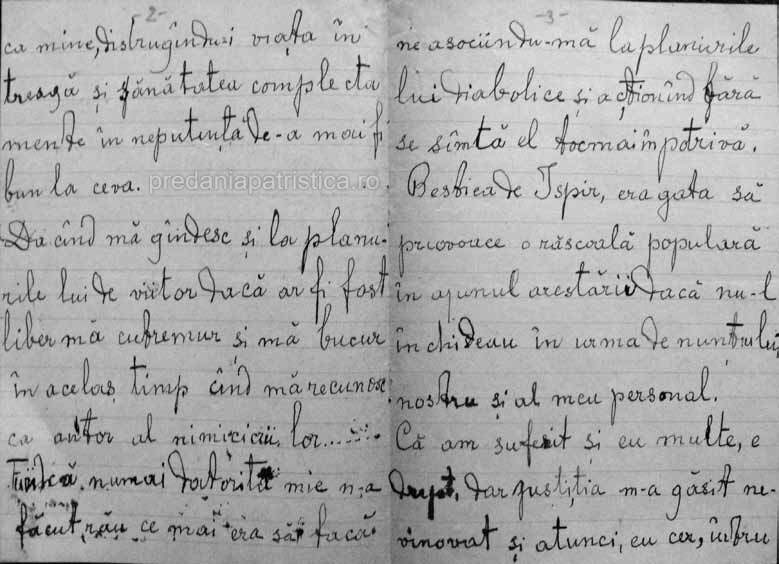 -2-
ca mine, distrugîndu-i viața în
treagă și sănătatea complecta
mente în neputență de-a mai fi
bun la ceva.
Da cînd mă gîndesc și la planu-
rile lui de viitor dacă ar fi fost
liber mă cutremur și mă bucur
în acelaș timp cînd mă recunosc
ca autor al nimicirii lor......
Fiidcă numai datorită mie n-a
făcut rău ce mai era să facă
-3-
ne asociindu-mă la planurile
lui diabolice și acționînd fără
se sîmtă el tocmai împotrivă.
Bestiea de Ispir, era gata să
provoace o răscoală populară
în ajunul arestării dacă nu-l
închideau în urma denunțului
nostru și al meu personal.
Că am suferit și eu multe, e
drept, dar justiția m-a găsit ne-
vinovat și atunci, eu cer, întru
predaniapatristica.ro